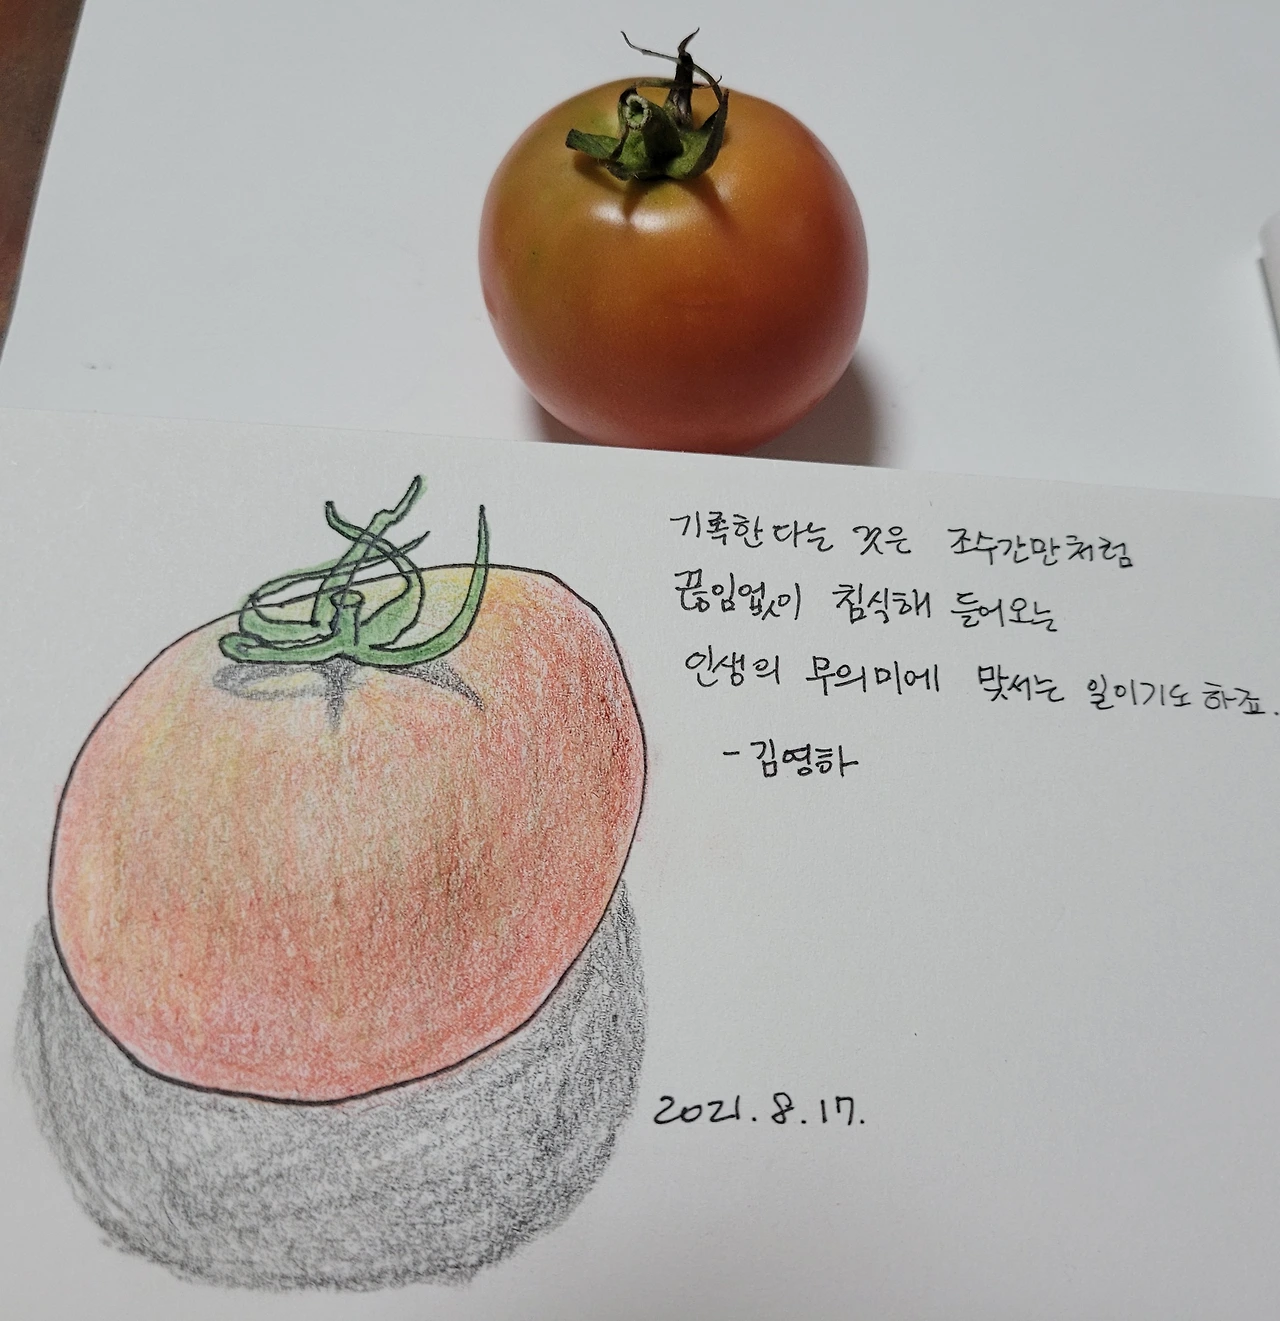 기록한다는 것은 조수간만처럼
끊임없이 침식해 들어오는
인생의 무의미에 맞서는 일이기도 하죠.
- 김영하
2021. 8. 17.